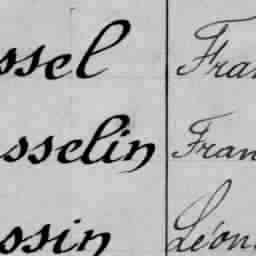 ssel Fran
sselin Fran
ssin Léon